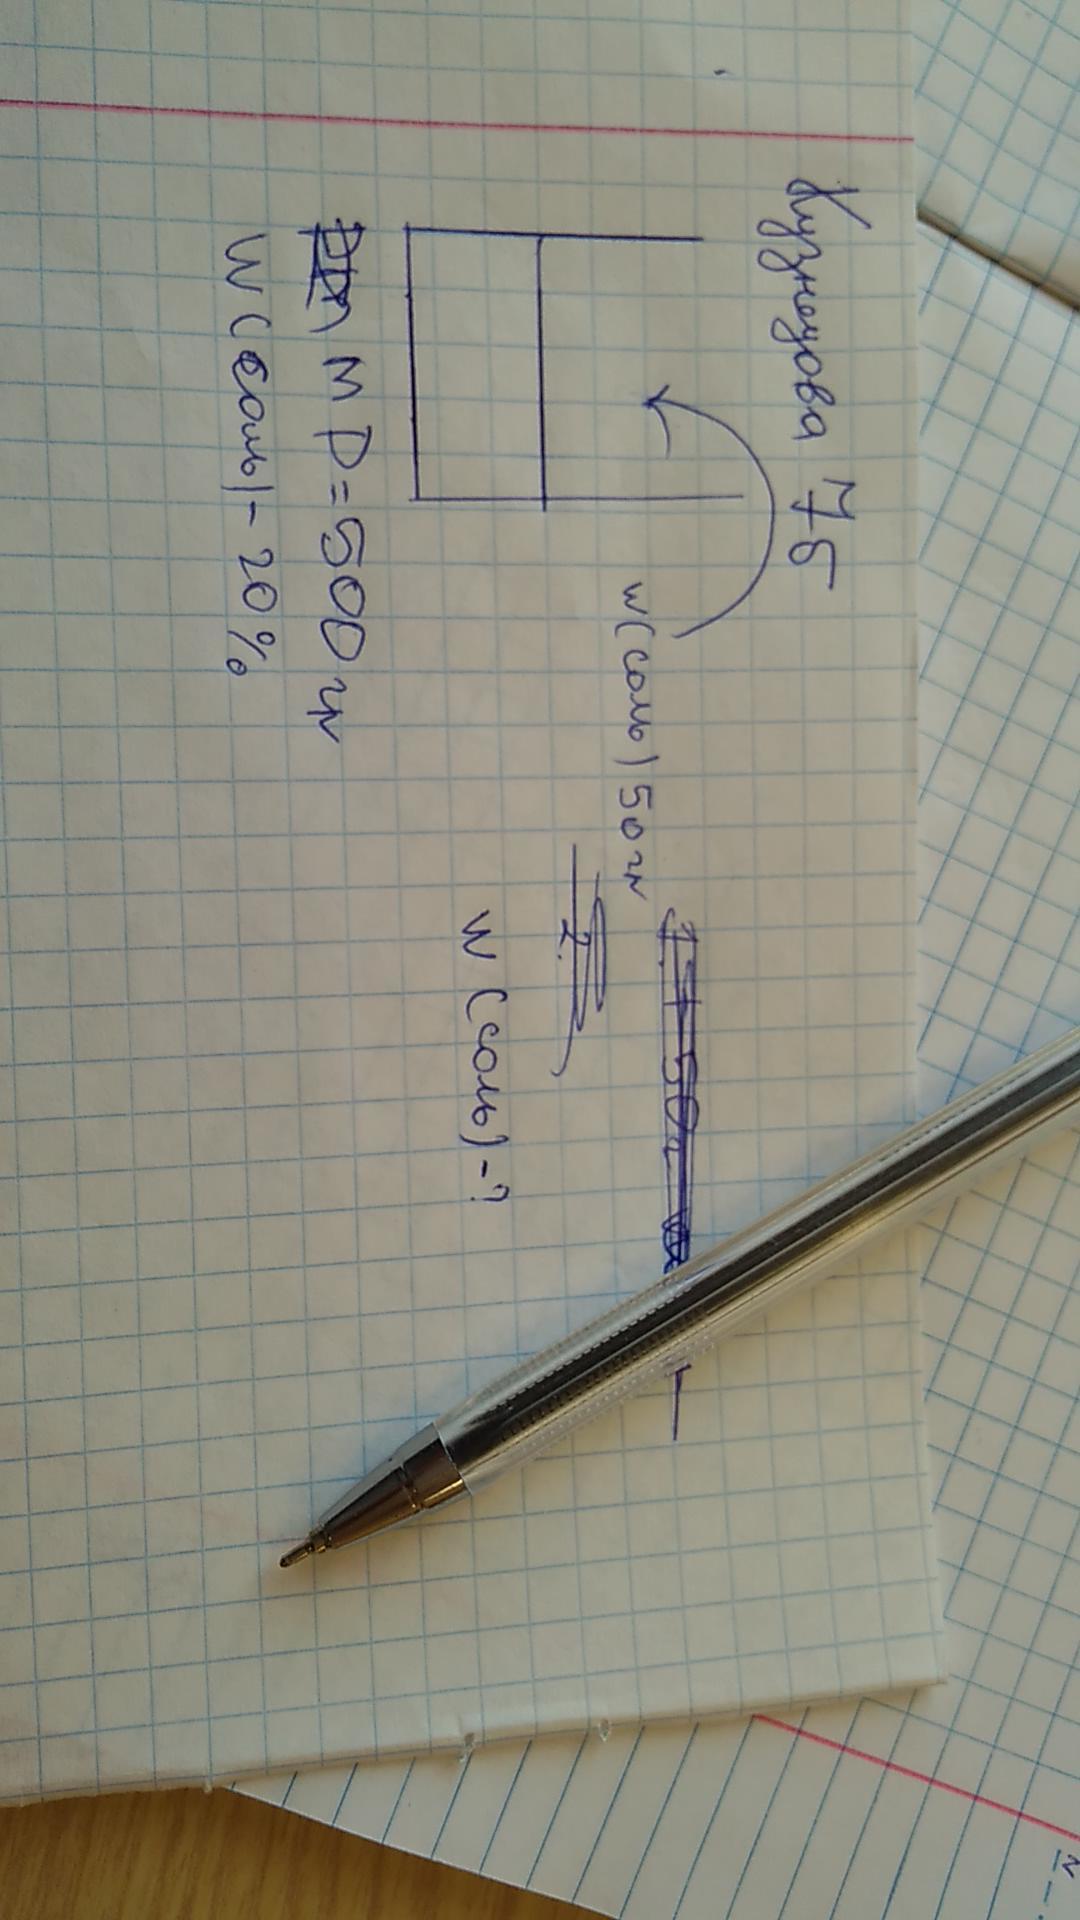 Кузнецова 7б
W(соль) 50гр
W (соль) - ?
M р = 500 гр
W (соль) - 20 %